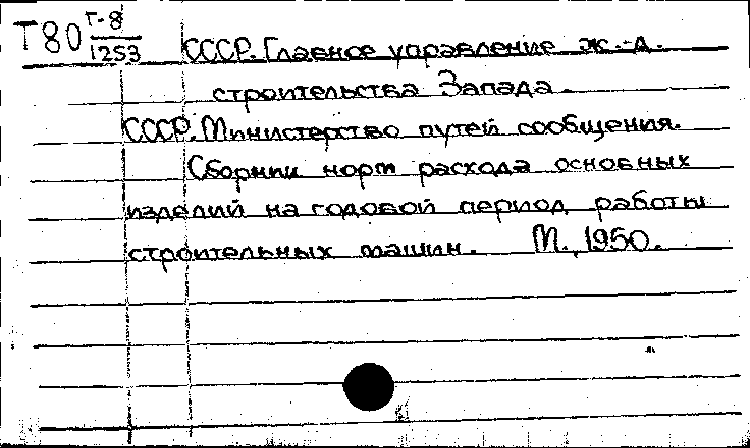 Т80 Г-8
1253
СССР. Главное управление ж.-д.
строительства Запада.
СССР. Министерство путей сообщения.
Сборник норм расхода основных
изделий на годовой период работы
строительных машин. М., 1950.